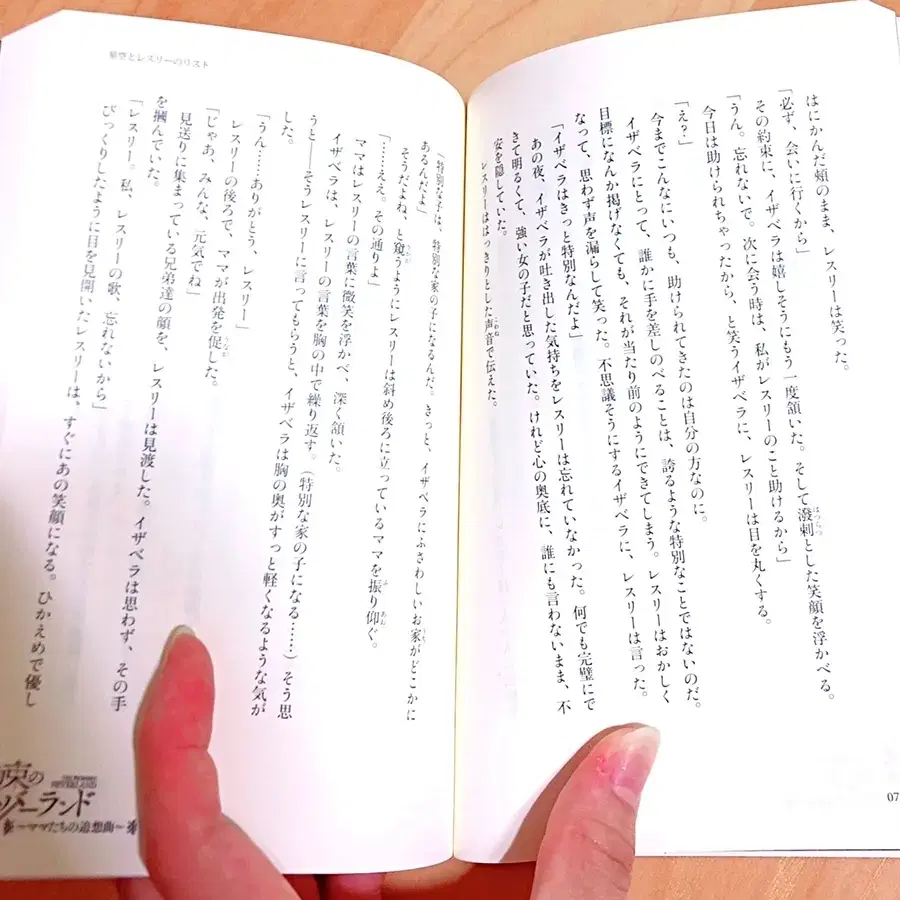 はにかんだ頰のまま、レスリーは笑った。
「必ず、会いに行くから」
その約束に、イザベラは嬉しそうにもう一度頷いた。そして潑剌とした笑顔を浮かべる。
はつらつ
「うん。忘れないで。次に会う時は、私がレスリーのこと助けるから」
今日は助けられちゃったから、と笑うイザベラに、レスリーは目を丸くする。
「え?」
今までこんなにいつも、助けられてきたのは自分の方なのに。
イザベラにとって、誰かに手を差しのべることは、誇るような特別なことではないのだ。
目標になんか掲げなくても、それが当たり前のようにできてしまう。レスリーはおかしく
なって、思わず声を漏らして笑った。不思議そうにするイザベラに、レスリーは言った。
「イザベラはきっと特別なんだよ」
あの夜、イザベラが吐き出した気持ちをレスリーは忘れていなかった。何でも完璧にで
きて明るくて、強い女の子だと思っていた。けれど心の奥底に、誰にも言わないまま、不
安を隠していた。
レスリーははっきりとした声音で伝えた。
こわね
07
星空とレスリーのリスト
「特別な子は、特別な家の子になるんだ。きっと、イザベラにふさわしいお家がどこかに
うち
あるんだよ」
そうだよね、と窺うようにレスリーは斜め後ろに立っているママを振り仰ぐ。
うかが
ふ
あお
「……ええ。その通りよ」
ママはレスリーの言葉に微笑を浮かべ、深く頷いた。
イザベラは、レスリーの言葉を胸の中で繰り返す。(特別な家の子になる……)そう思
うと——そうレスリーに言ってもらうと、イザベラは胸の奥がすっと軽くなるような気が
した。
「うん……ありがとう、レスリー」
レスリーの後ろで、ママが出発を促した。
うなが
「じゃあ、みんな、元気でね」
見送りに集まっている兄弟達の顔を、レスリーは見渡した。イザベラは思わず、その手
を摑んでいた。
「レスリー。私、レスリーの歌、忘れないから」
びっくりしたように目を見開いたレスリーは、すぐにあの笑顔になる。ひかえめで優し
束の
ーランド
THE PROMISED NEVERLAND
〜ママたちの追想曲〜